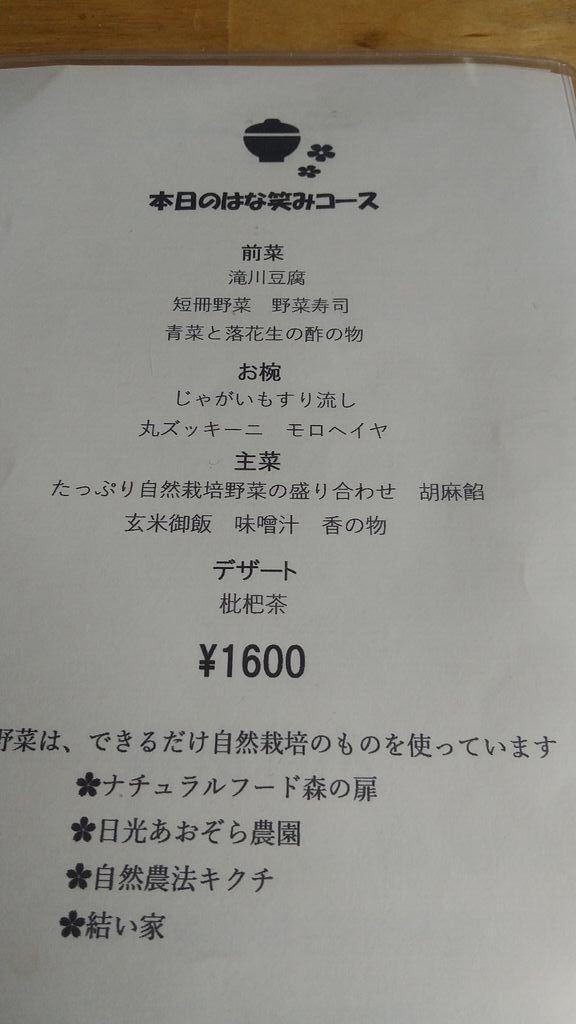 本日のはな笑みコース
前菜
滝川豆腐
短冊野菜　野菜寿司
青菜と落花生の酢の物
お椀
じゃがいもすり流し
丸ズッキーニ　モロヘイヤ
主菜
たっぷり自然栽培野菜の盛り合わせ　胡麻餡
玄米御飯　味噌汁　香の物
デザート
枇杷茶
¥1600
野菜は、できるだけ自然栽培のものを使っています
✽ナチュラルフード森の扉
✽日光あおぞら農園
✽自然農法キクチ
✽結い家